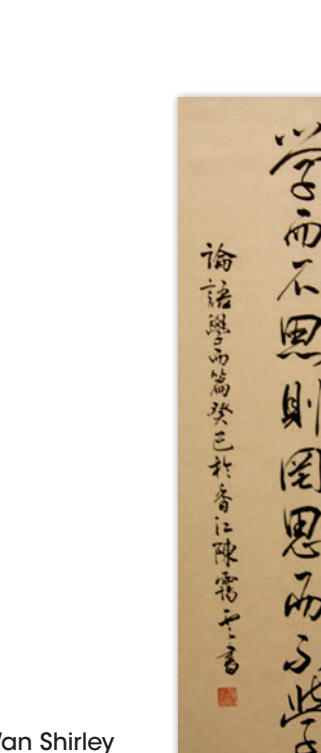 學而不思則罔思而不學
論語學而篇癸巳於香江陳靄雲書
Wan Shirley